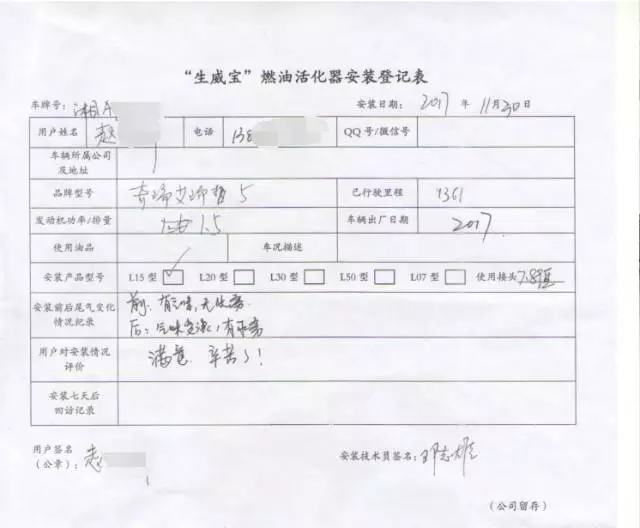 “生威宝”燃油活化器安装登记表
车牌号： 湘 安装日期： 2017 年 11月30日
用户姓名 赵 电话 138 QQ号/微信号
车辆所属公司及地址
品牌型号 奇瑞艾瑞 5 已行驶里程 1361
发动机功率/排量 1.5 车辆出厂日期 2017
使用油品 车况描述
安装产品型号 L15型 L20型 L30型 L50型 L07型 使用接头
安装前后尾气变化情况纪录 前：有气味，无水雾.
后：气味变淡，有水雾
用户对安装情况评价 满意 辛苦了！
安装七天后回访记录
用户签名（公章）： 赵 安装技术员签名： 邓志雄
（公司留存）